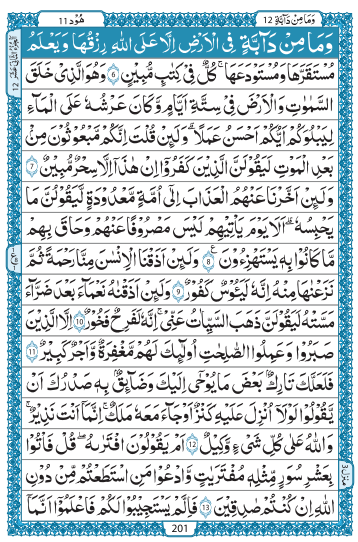 وَمَا مِنْ دَآبَّةٍ 12 هُوْد 11
وَمَا مِنْ دَآبَّةٍ فِى الْاَرْضِ اِلَّا عَلَى اللّٰهِ رِزْقُهَا وَيَعْلَمُ
مُسْتَقَرَّهَا وَمُسْتَوْدَعَهَا ؕ كُلٌّ فِىْ كِتٰبٍ مُّبِيْنٍ 6 وَهُوَ الَّذِىْ خَلَقَ
السَّمٰوٰتِ وَالْاَرْضَ فِىْ سِتَّةِ اَيَّامٍ وَّكَانَ عَرْشُهٗ عَلَى الْمَآءِ
لِيَبْلُوَكُمْ اَيُّكُمْ اَحْسَنُ عَمَلًا ؕ وَلَئِنْ قُلْتَ اِنَّكُمْ مَّبْعُوْثُوْنَ مِنْۢ
بَعْدِ الْمَوْتِ لَيَقُوْلَنَّ الَّذِيْنَ كَفَرُوْۤا اِنْ هٰذَاۤ اِلَّا سِحْرٌ مُّبِيْنٌ 7
وَلَئِنْ اَخَّرْنَا عَنْهُمُ الْعَذَابَ اِلٰٓى اُمَّةٍ مَّعْدُوْدَةٍ لَّيَقُوْلُنَّ مَا
يَحْبِسُهٗ ؕ اَلَا يَوْمَ يَاْتِيْهِمْ لَيْسَ مَصْرُوْفًا عَنْهُمْ وَحَاقَ بِهِمْ
مَّا كَانُوْا بِهٖ يَسْتَهْزِءُوْنَ 8 وَلَئِنْ اَذَقْنَا الْاِنْسَانَ مِنَّا رَحْمَةً ثُمَّ
نَزَعْنٰهَا مِنْهُ ۚ اِنَّهٗ لَيَئُوْسٌ كَفُوْرٌ 9 وَلَئِنْ اَذَقْنٰهُ نَعْمَآءَ بَعْدَ ضَرَّآءَ
مَسَّتْهُ لَيَقُوْلَنَّ ذَهَبَ السَّيِّاٰتُ عَنِّىْ ؕ اِنَّهٗ لَفَرِحٌ فَخُوْرٌ 10 اِلَّا الَّذِيْنَ
صَبَرُوْا وَعَمِلُوا الصّٰلِحٰتِ ؕ اُولٰٓئِكَ لَهُمْ مَّغْفِرَةٌ وَّاَجْرٌ كَبِيْرٌ 11
فَلَعَلَّكَ تَارِكٌۢ بَعْضَ مَا يُوْحٰٓى اِلَيْكَ وَضَآئِقٌۢ بِهٖ صَدْرُكَ اَنْ
يَّقُوْلُوْا لَوْلَاۤ اُنْزِلَ عَلَيْهِ كَنْزٌ اَوْ جَآءَ مَعَهٗ مَلَكٌ ؕ اِنَّمَاۤ اَنْتَ نَذِيْرٌ ؕ
وَاللّٰهُ عَلٰى كُلِّ شَىْءٍ وَّكِيْلٌ 12 اَمْ يَقُوْلُوْنَ افْتَرٰٮهُ ؕ قُلْ فَاْتُوْا
بِعَشْرِ سُوَرٍ مِّثْلِهٖ مُفْتَرَيٰتٍ وَّادْعُوْا مَنِ اسْتَطَعْتُمْ مِّنْ دُوْنِ
اللّٰهِ اِنْ كُنْتُمْ صٰدِقِيْنَ 13 فَاِلَّمْ يَسْتَجِيْبُوْا لَكُمْ فَاعْلَمُوْۤا اَنَّمَاۤ
201